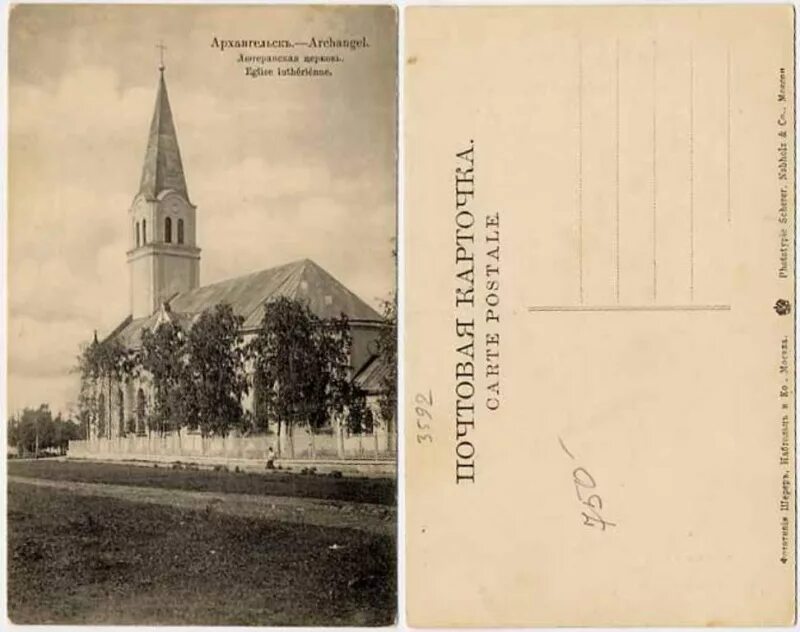 Архангельскъ.—Archangel.
Лютеранская церковь.
Eglise luthériénne.
ПОЧТОВАЯ КАРТОЧКА.
CARTE POSTALE
3592
750
Phototypie Scherer, Nabholz & Co., Moscou
Фототипія Шереръ, Набгольцъ и Ко. Москва.